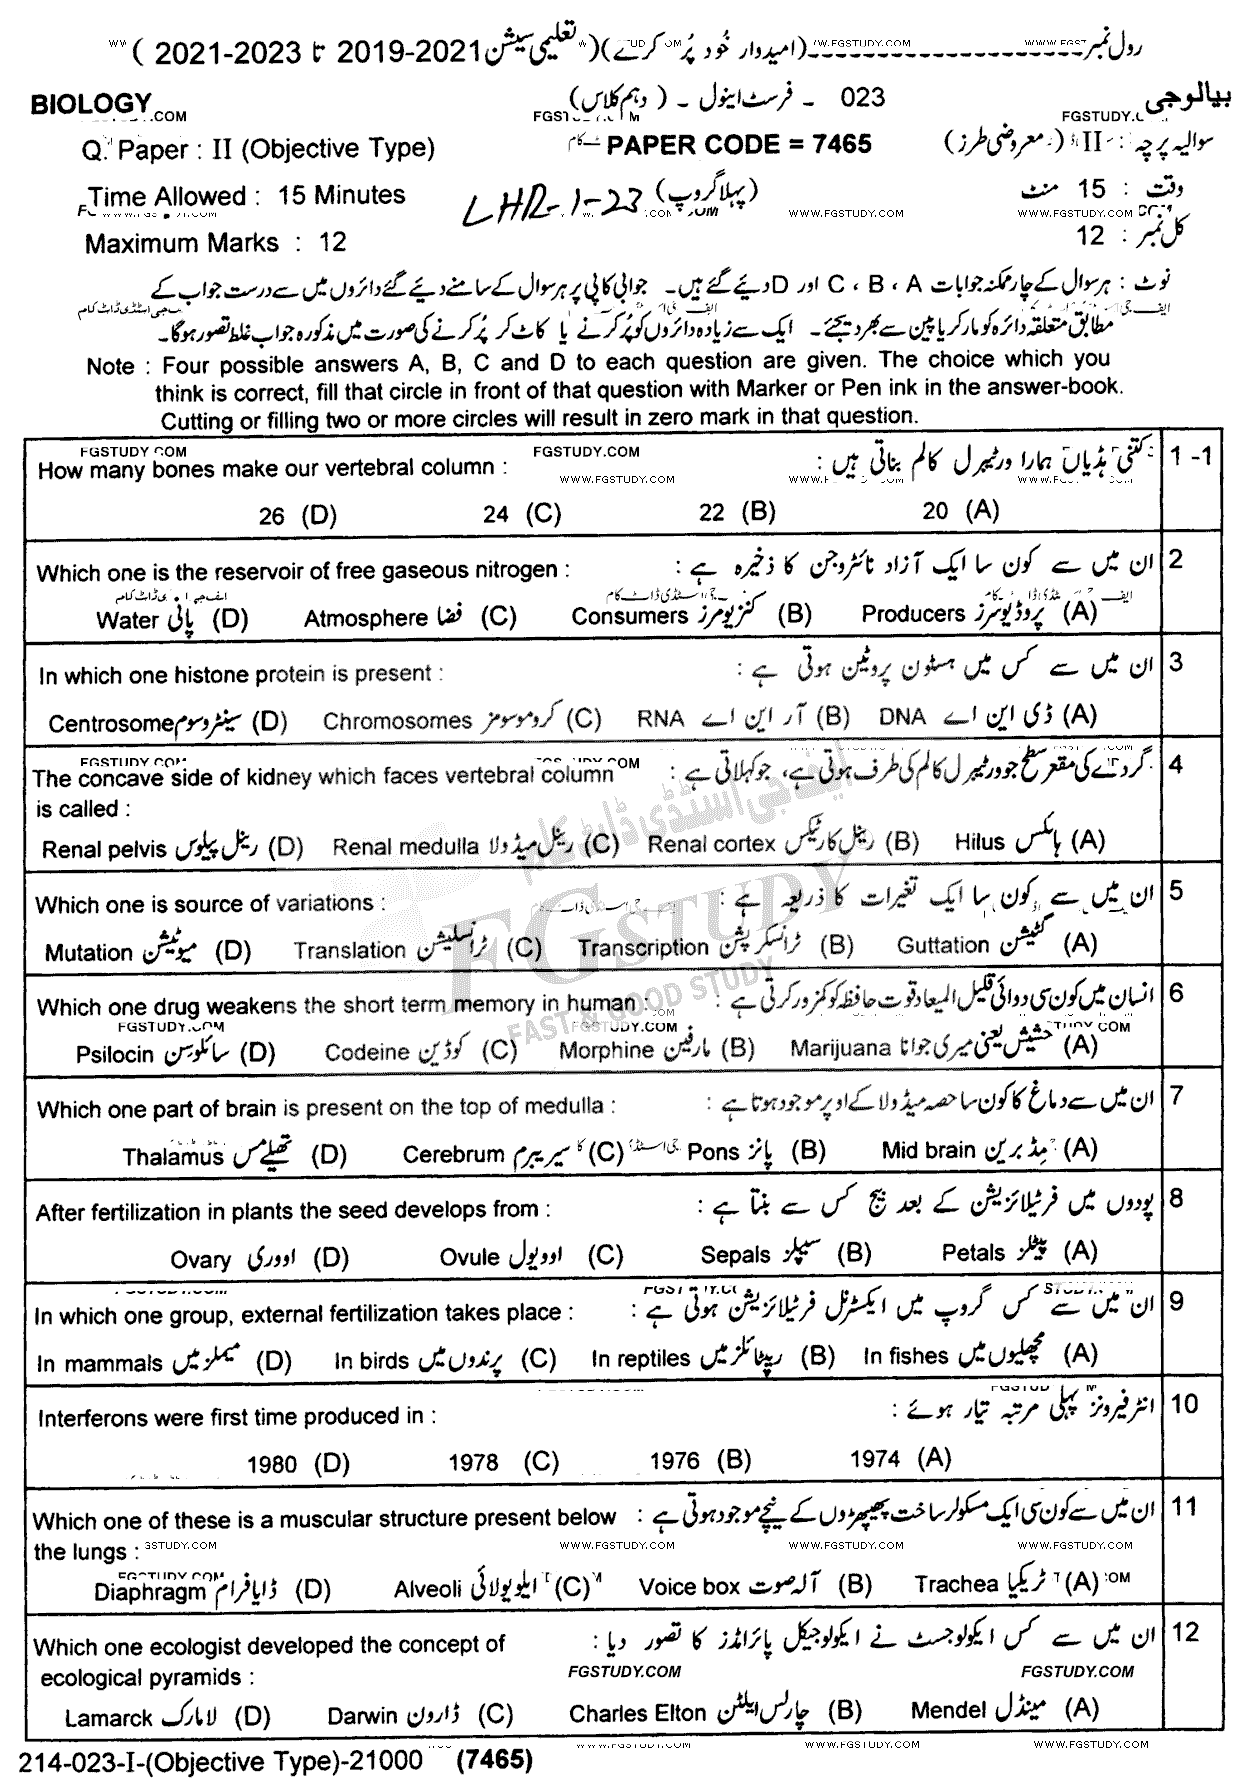 رول نمبر ------------------ (امیدوار خُود پُر کرے) ( تعلیمی سیشن 2021-2019 تا 2023-2021 )
BIOLOGY 023 - فرسٹ اینول - ( دہم کلاس) بیالوجی
Q. Paper : II (Objective Type) PAPER CODE = 7465 سوالیہ پرچہ : II (معروضی طرز)
Time Allowed : 15 Minutes LHR-1-23 (پہلا گروپ) وقت : 15 منٹ
Maximum Marks : 12 کل نمبر : 12
نوٹ : ہر سوال کے چار ممکنہ جوابات A ، B ، C اور D دیئے گئے ہیں۔ جوابی کاپی پر ہر سوال کے سامنے دیئے گئے دائروں میں سے درست جواب کے
مطابق متعلقہ دائرہ کو مارکر یا پین سے بھر دیجئے۔ ایک سے زیادہ دائروں کو پُر کرنے یا کاٹ کر پُر کرنے کی صورت میں مذکورہ جواب غلط تصور ہوگا۔
Note : Four possible answers A, B, C and D to each question are given. The choice which you
think is correct, fill that circle in front of that question with Marker or Pen ink in the answer-book.
Cutting or filling two or more circles will result in zero mark in that question.
How many bones make our vertebral column : کتنی ہڈیاں ہمارا ورٹیبرل کالم بناتی ہیں : 1 -1
26 (D) 24 (C) 22 (B) 20 (A)
Which one is the reservoir of free gaseous nitrogen : ان میں سے کون سا ایک آزاد نائٹروجن کا ذخیرہ ہے : 2
Water پانی (D) Atmosphere فضا (C) Consumers کنزیومرز (B) Producers پروڈیوسرز (A)
In which one histone protein is present : ان میں سے کس میں ہسٹون پروٹین ہوتی ہے : 3
Centrosome سینٹروسوم (D) Chromosomes کروموسومز (C) RNA آر این اے (B) DNA ڈی این اے (A)
The concave side of kidney which faces vertebral column گردے کی مقعر سطح جو ورٹیبرل کالم کی طرف ہوتی ہے، جو کہلاتی ہے : 4
is called :
Renal pelvis رینل پیلوس (D) Renal medulla رینل میڈولا (C) Renal cortex رینل کارٹیکس (B) Hilus ہائلس (A)
Which one is source of variations : ان میں سے کون سا ایک تغیرات کا ذریعہ ہے : 5
Mutation میوٹیشن (D) Translation ٹرانسلیشن (C) Transcription ٹرانسکرپشن (B) Guttation گٹیشن (A)
Which one drug weakens the short term memory in human : انسان میں کون سی دوائی قلیل المیعاد قوت حافظہ کو کمزور کرتی ہے : 6
Psilocin سائلوسن (D) Codeine کوڈین (C) Morphine مارفین (B) Marijuana حشیش یعنی میری جوانا (A)
Which one part of brain is present on the top of medulla : ان میں سے دماغ کا کون سا حصہ میڈولا کے اوپر موجود ہوتا ہے : 7
Thalamus تھیلے مس (D) Cerebrum سیریبرم (C) Pons پانز (B) Mid brain مڈ برین (A)
After fertilization in plants the seed develops from : پودوں میں فرٹیلائزیشن کے بعد بیج کس سے بنتا ہے : 8
Ovary اووری (D) Ovule اوویول (C) Sepals سیپلز (B) Petals پیٹلز (A)
In which one group, external fertilization takes place : ان میں سے کس گروپ میں ایکسٹرنل فرٹیلائزیشن ہوتی ہے : 9
In mammals میملز میں (D) In birds پرندوں میں (C) In reptiles ریپٹائلز میں (B) In fishes مچھلیوں میں (A)
Interferons were first time produced in : انٹرفیرونز پہلی مرتبہ تیار ہوئے : 10
1980 (D) 1978 (C) 1976 (B) 1974 (A)
Which one of these is a muscular structure present below ان میں سے کون سی ایک مسکولر ساخت پھیپھڑوں کے نیچے موجود ہوتی ہے : 11
the lungs :
Diaphragm ڈایافرام (D) Alveoli ایلویولائی (C) Voice box آلہ صوت (B) Trachea ٹریکیا (A)
Which one ecologist developed the concept of ان میں سے کس ایکولوجسٹ نے ایکولوجیکل پائرامڈز کا تصور دیا : 12
ecological pyramids : FGSTUDY.COM FGSTUDY.COM
Lamarck لامارک (D) Darwin ڈارون (C) Charles Elton چارلس ایلٹن (B) Mendel مینڈل (A)
214-023-I-(Objective Type)-21000 (7465)